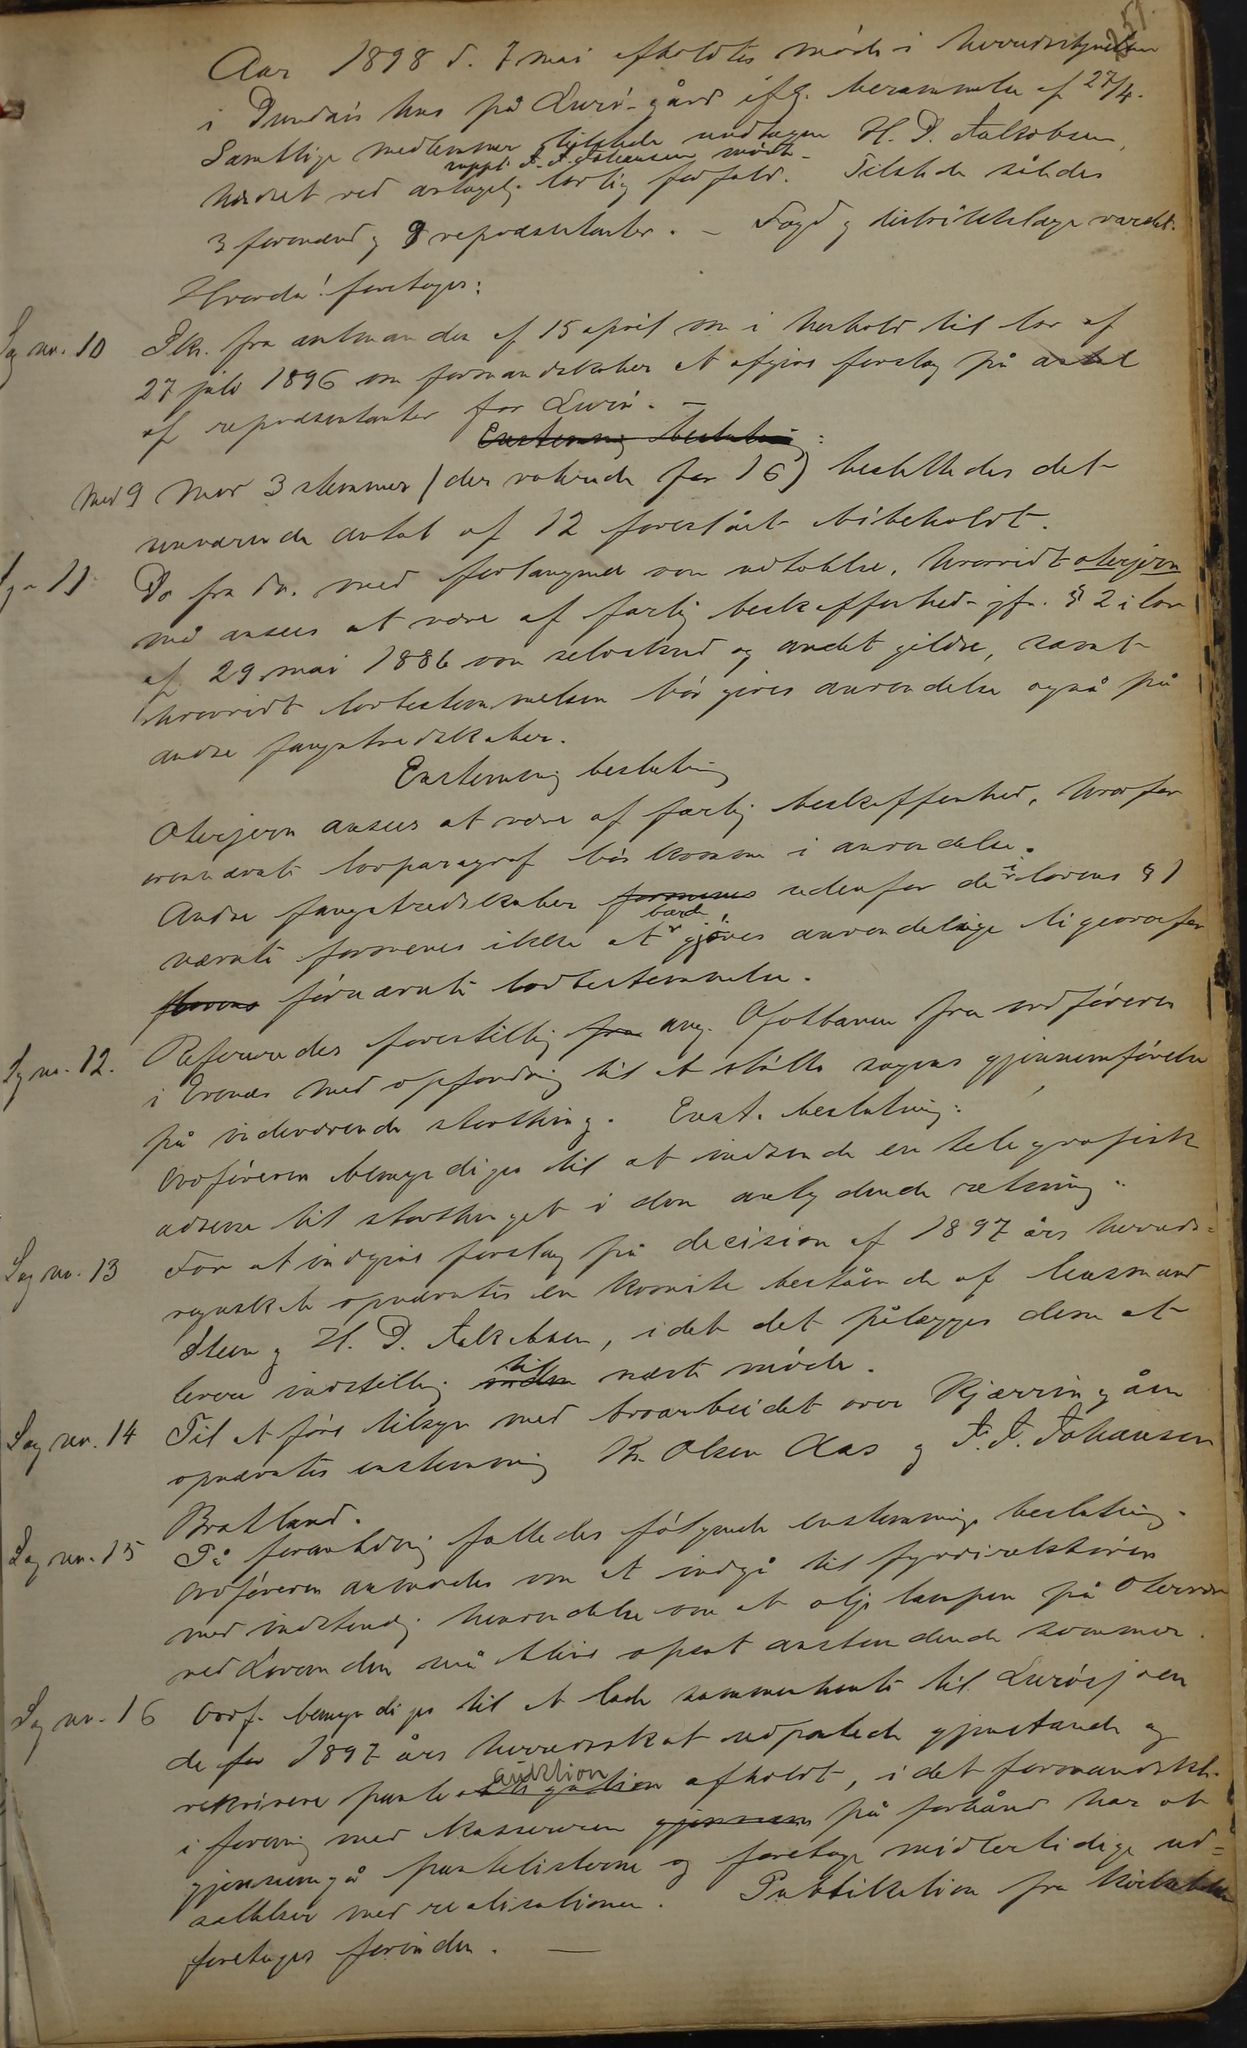 51.
Aar 1898 d. 7 mai afholdtes møde i herredsstyrelsen
i Dundas's hus på Lurø-gård ifg. berammelse af 27/4.
Samtlige medlemmer tilstede undtagen H. D.
suppl. J. J. Johansen mødt-
hindret ved antagelig lovlig forfald. Tilstede således
3 formænd og 8 repræsentanter. - Fogd og distriktslæge varslet.
Hvorda! foretoges:
Sag no. 10 Skr. fra amtmanden af 15 april om i henhold til lov af
27 juli 1896 om formandskaber at afgive forslag på antal
af repræsentanter for Lurø. -
Enstemmig beslutning:
Med 9 mod 3 stemmer (der voterede for 16) besluttedes det
nuværende antal af 12 foreslået bibeholdt.
11 Do fra do. med forlangende om udtalelse, hvorvidt oterjern
må ansees at være af farlig beskaffenhed - jfr. § 2 i lov
af 29 mai 1886 om selvskud og andet gildre, samt
hvorvidt lovbestemmelsen bør gives anvendelse også på
andre fangstredskaber.
Enstemmig beslutning
Oterjern ansees at være af farlig beskaffenhed, hvorfor
ovennævnte lovparagraf bør komme i anvendelse.
Andre fangstredskaber formenes udenfor de i lovens § 1
burde
nævnte formenes ikke at gjøres anvendelige ligeoverfor
lovens førnævnte lovbestemmelse.
Sag no. 12. Refereredes forestilling fra ang. Ofotbanen fra ordføreren
i Evenes med opfordring til at støtte sagens gjennemførelse
på indeværende storthing. Enst. beslutning:
Ordføreren bemyndiges til at indsende en telegrafisk
adresse til storthinget i den antydende retning.
Sag no. 13 For at indgive forslag på decision af 1897 års herreds=
regnskab opnævntes en komite bestående af lensmand
Steen og H. D., idet det pålægges dem at
til
levere indstilling inden næste møde.
Sag no. 14 Til at føre tilsyn med broarbeidet over Kjerringåen
opnævntes enstemmig Kr. Olsen Aas og J. J. Johansen
Bratland.
Sag no. 15 På foranledning fattedes følgende enstemmige beslutning.
Ordføreren anmodes om at indgå til fyrdirektøren
med indstendig henvendelse om at oljelampen på
ved Lovunden må blive opsat anstundende sommer.
Sag no. 16 Ordf. bemyndiges til at lade sammenhente til Lurøsjøen
de for 1897 års herredsskat udpantede gjenstande og
auktion
rekvirere pante afholdt, idet formandskb.
i forening med kassereren gjennem på forhånd har at
gjennemgå pantelisterne og foretage midlertidige ud=
sættelser med realisationen. Publikation fra kirkebakken
foretages forinden. -